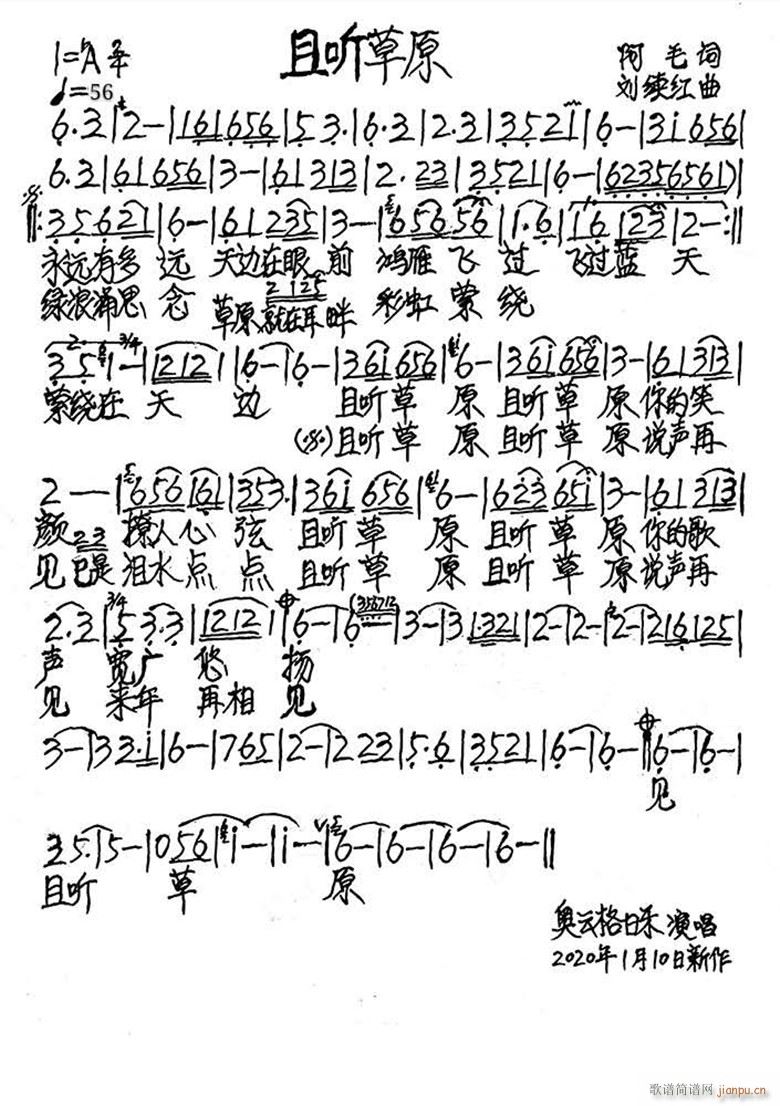 且听草原
1=♭A 2/4
♩=56
阿毛词
刘续红曲
6.3|2-|161656|5 3.|6.3|2.3|3521|6-|31656|
6.3|61656|3-|61313|2.23|3521|6-|62356561)|
35621|6-|61235|3-|65656|1.6|16123|2-:||
永远有多远 天边在眼前 鸿雁飞过 飞过蓝天
2 125
绿浪涌思念 草原就在耳畔 彩虹萦绕
3 5 1-|12121|6-|6-|361656|6-|361656|3-|61313|
萦绕在天边 且听草原且听草原你的笑
且听草原且听草原说声再
2--|656161|353.|361656|6-|623651|3-|61313|
颜 撩人心弦 且听草原且听草原你的歌
23
见已是泪水点点 且听草原且听草原说声再
2.3|3/4 5 3.3|12121|6-|6(356712|3-|31321|2-|2-|2-|216125|
声宽广悠扬
见来年再相见
3-|33.1|6-|765|2-|223|5.6|3521|6-|6-||6-|6-|
见
35.|5-|056|1-|1-|6-|6-|6-|6-||
且听草原
演唱
2020年1月10日新作
歌谱简谱网
jianpu.cn